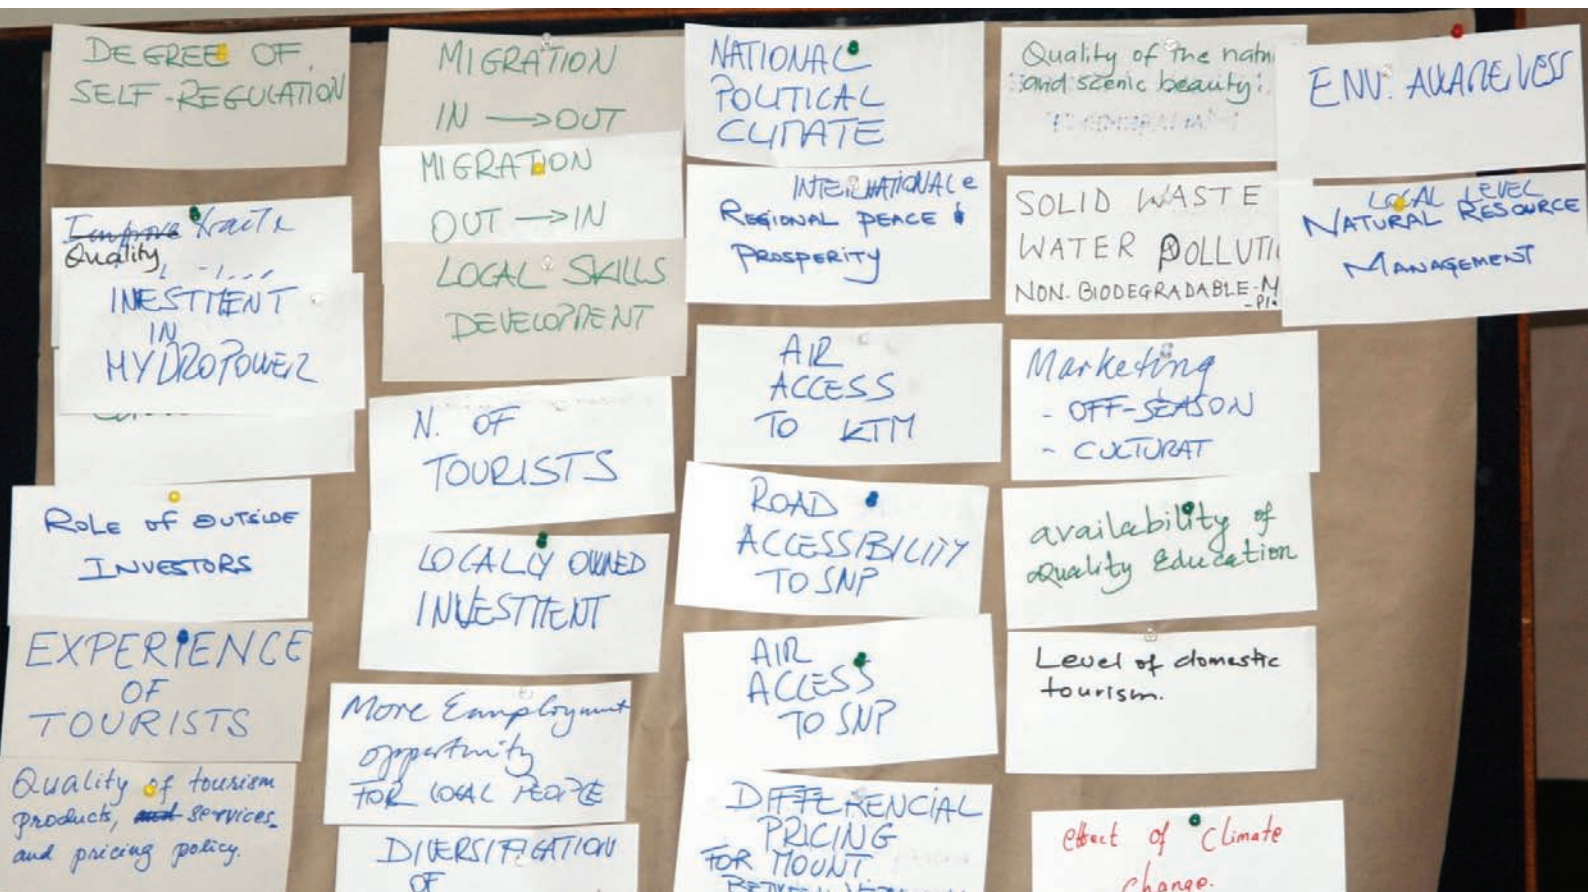 DEGREE OF
SELF-REGULATION
Improve
Quality
INESTMENT
IN
HYDROPOWER
ROLE OF OUTSIDE
INVESTORS
EXPERIENCE
OF
TOURISTS
Quality of tourism
products, and services
and pricing policy.
MIGRATION
IN → OUT
MIGRATION
OUT → IN
LOCAL SKILLS
DEVELOPMENT
N. OF
TOURISTS
LOCALLY OWNED
INVESTMENT
MORE Employment
opportunity
FOR LOCAL PEOPLE
DIVERSIFICATION
OF
NATIONAL
POLITICAL
CLIMATE
INTERNATIONAL &
REGIONAL PEACE &
PROSPERITY
AIR
ACCESS
TO KTM
ROAD
ACCESSIBILITY
TO SNP
AIR
ACCESS
TO SNP
DIFFERENCIAL
PRICING
FOR MOUNT
Quality of the
and scenic beauty
SOLID WASTE
WATER
NON. BIODEGRADABLE
Marketing
- OFF-SEASON
- CULTURAT
availability of
Quality Education
Level of domestic
tourism.
effect of Climate
change.
ENV. AWARENESS
LOCAL LEVEL
NATURAL RESOURCE
MANAGEMENT